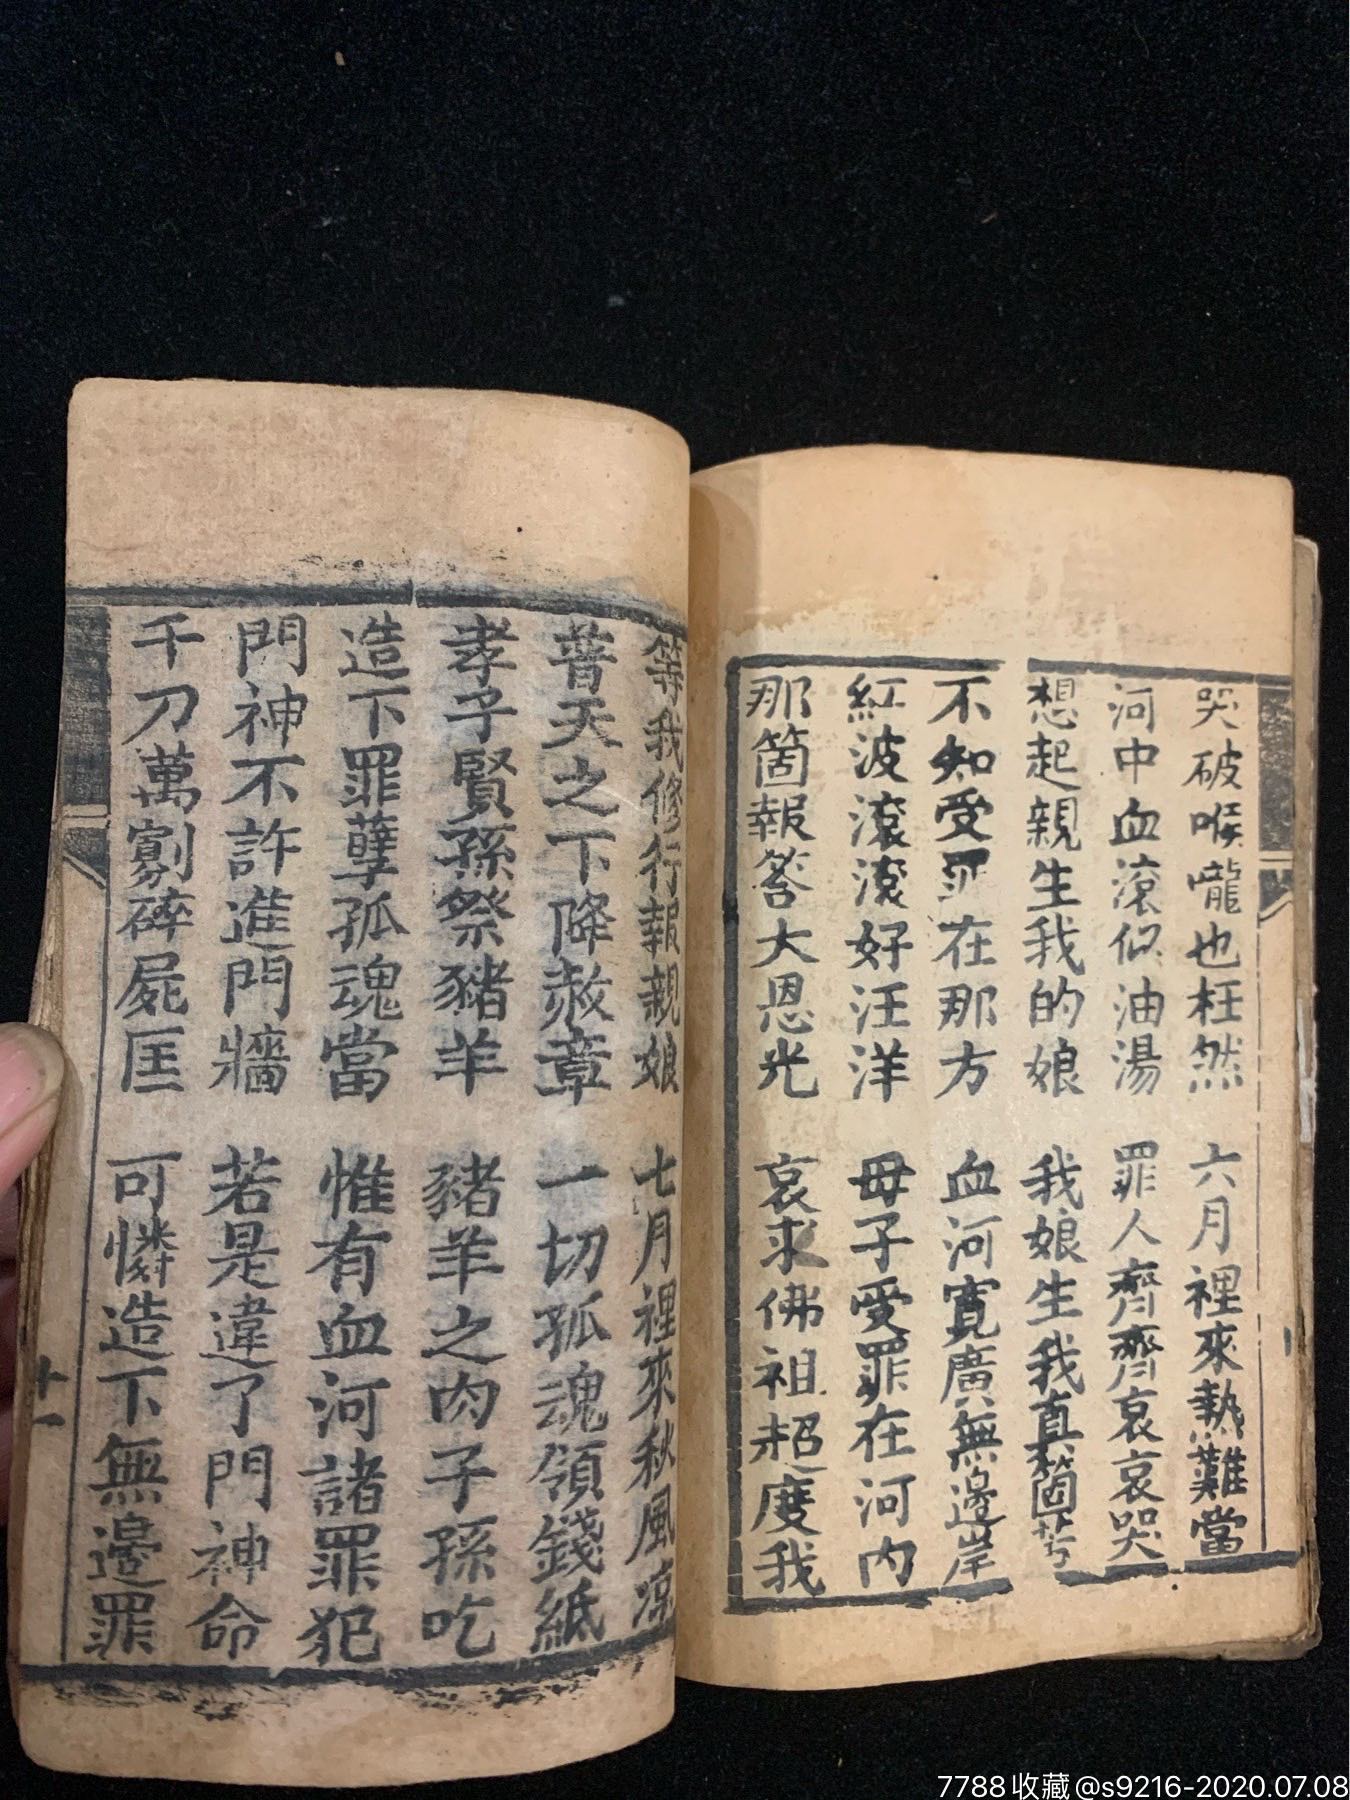 哭破喉嚨也枉然 六月裡來熱難當
河中血滾似油湯 罪人齊齊哀哀哭
想起親生我的娘 我娘生我真箇苦
不知受罪在那方 血河寬廣無邊岸
紅波滾滾好汪洋 母子受罪在河內
那箇報答大恩光 哀求佛祖超度我
等我修行報親娘 七月裡來秋風涼
普天之下降赦章 一切孤魂領錢紙
孝子賢孫祭豬羊 豬羊之肉子孫吃
造下罪孽孤魂當 惟有血河諸罪犯
門神不許進門牆 若是違了門神命
千刀萬剮碎屍匡 可憐造下無邊罪
十一
7788收藏@s9216-2020.07.08